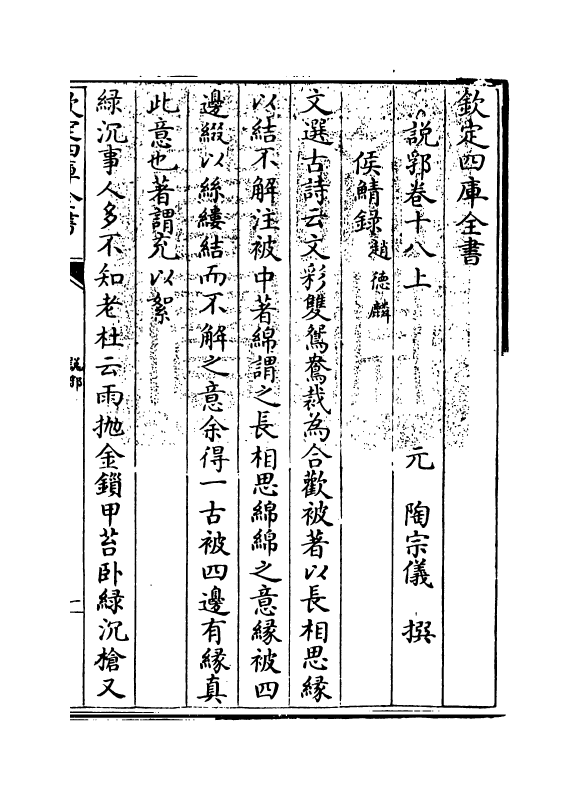 欽定四庫全書
說郛卷十八上
元 陶宗儀 撰
侯鯖錄 趙德麟
文選古詩云文彩雙鴛鴦裁為合歡被著以長相思緣
以結不解注被中著綿謂之長相思綿綿之意緣被四
邊綴以絲縷結而不解之意余得一古被四邊有緣真
此意也著謂充以絮
綠沉事人多不知老杜云雨拋金鎖甲苔卧綠沉槍又
欽定四庫全書
說郛
一